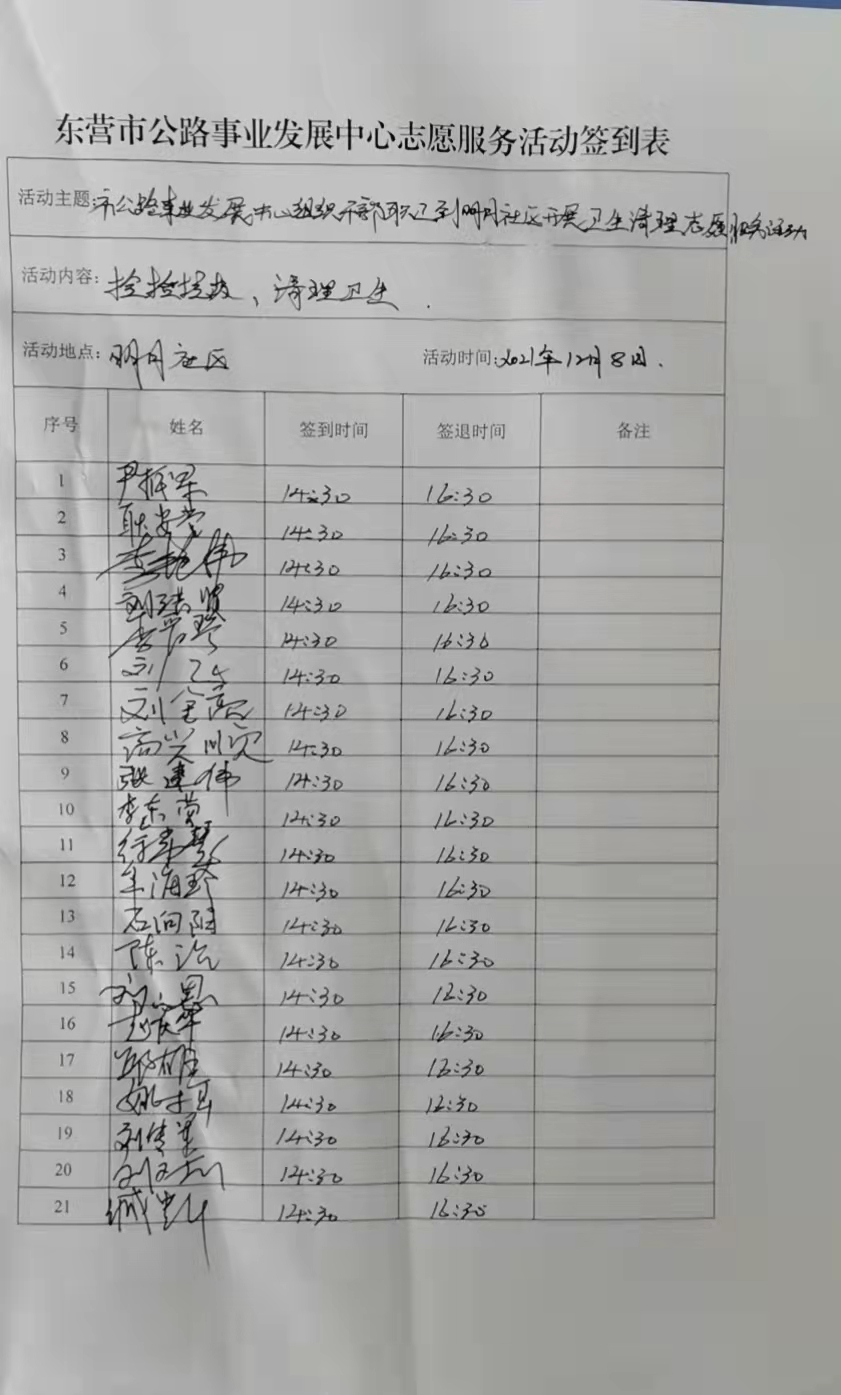 东营市公路事业发展中心志愿服务活动签到表
活动主题:市公路事业发展中心组织干部职工到明月社区开展卫生清理志愿服务活动
活动内容: 捡捡垃圾、清理卫生.
活动地点: 明月社区 活动时间:2021年12月8日.
序号 姓名 签到时间 签退时间 备注
1 尹振 14:30 16:30
2 耿安営 14:30 16:30
3 李艳伟 14:30 16:30
4 刘 贤 14:30 16:30
5 李 14:30 16:30
6 刘 14:30 16:30
7 刘金亮 14:30 16:30
8 高兴顺 14:30 16:30
9 张建伟 14:30 16:30
10 李东营 14:30 16:30
11 徐 慧 14:30 16:30
12 牟海 14:30 16:30
13 石向阳 14:30 16:30
14 陈 14:30 16:30
15 刘 14:30 16:30
16 赵 华 14:30 16:30
17 邱 14:30 16:30
18 姚 14:30 16:30
19 刘传 14:30 16:30
20 刘 14:30 16:30
21 臧凯 14:30 16:30